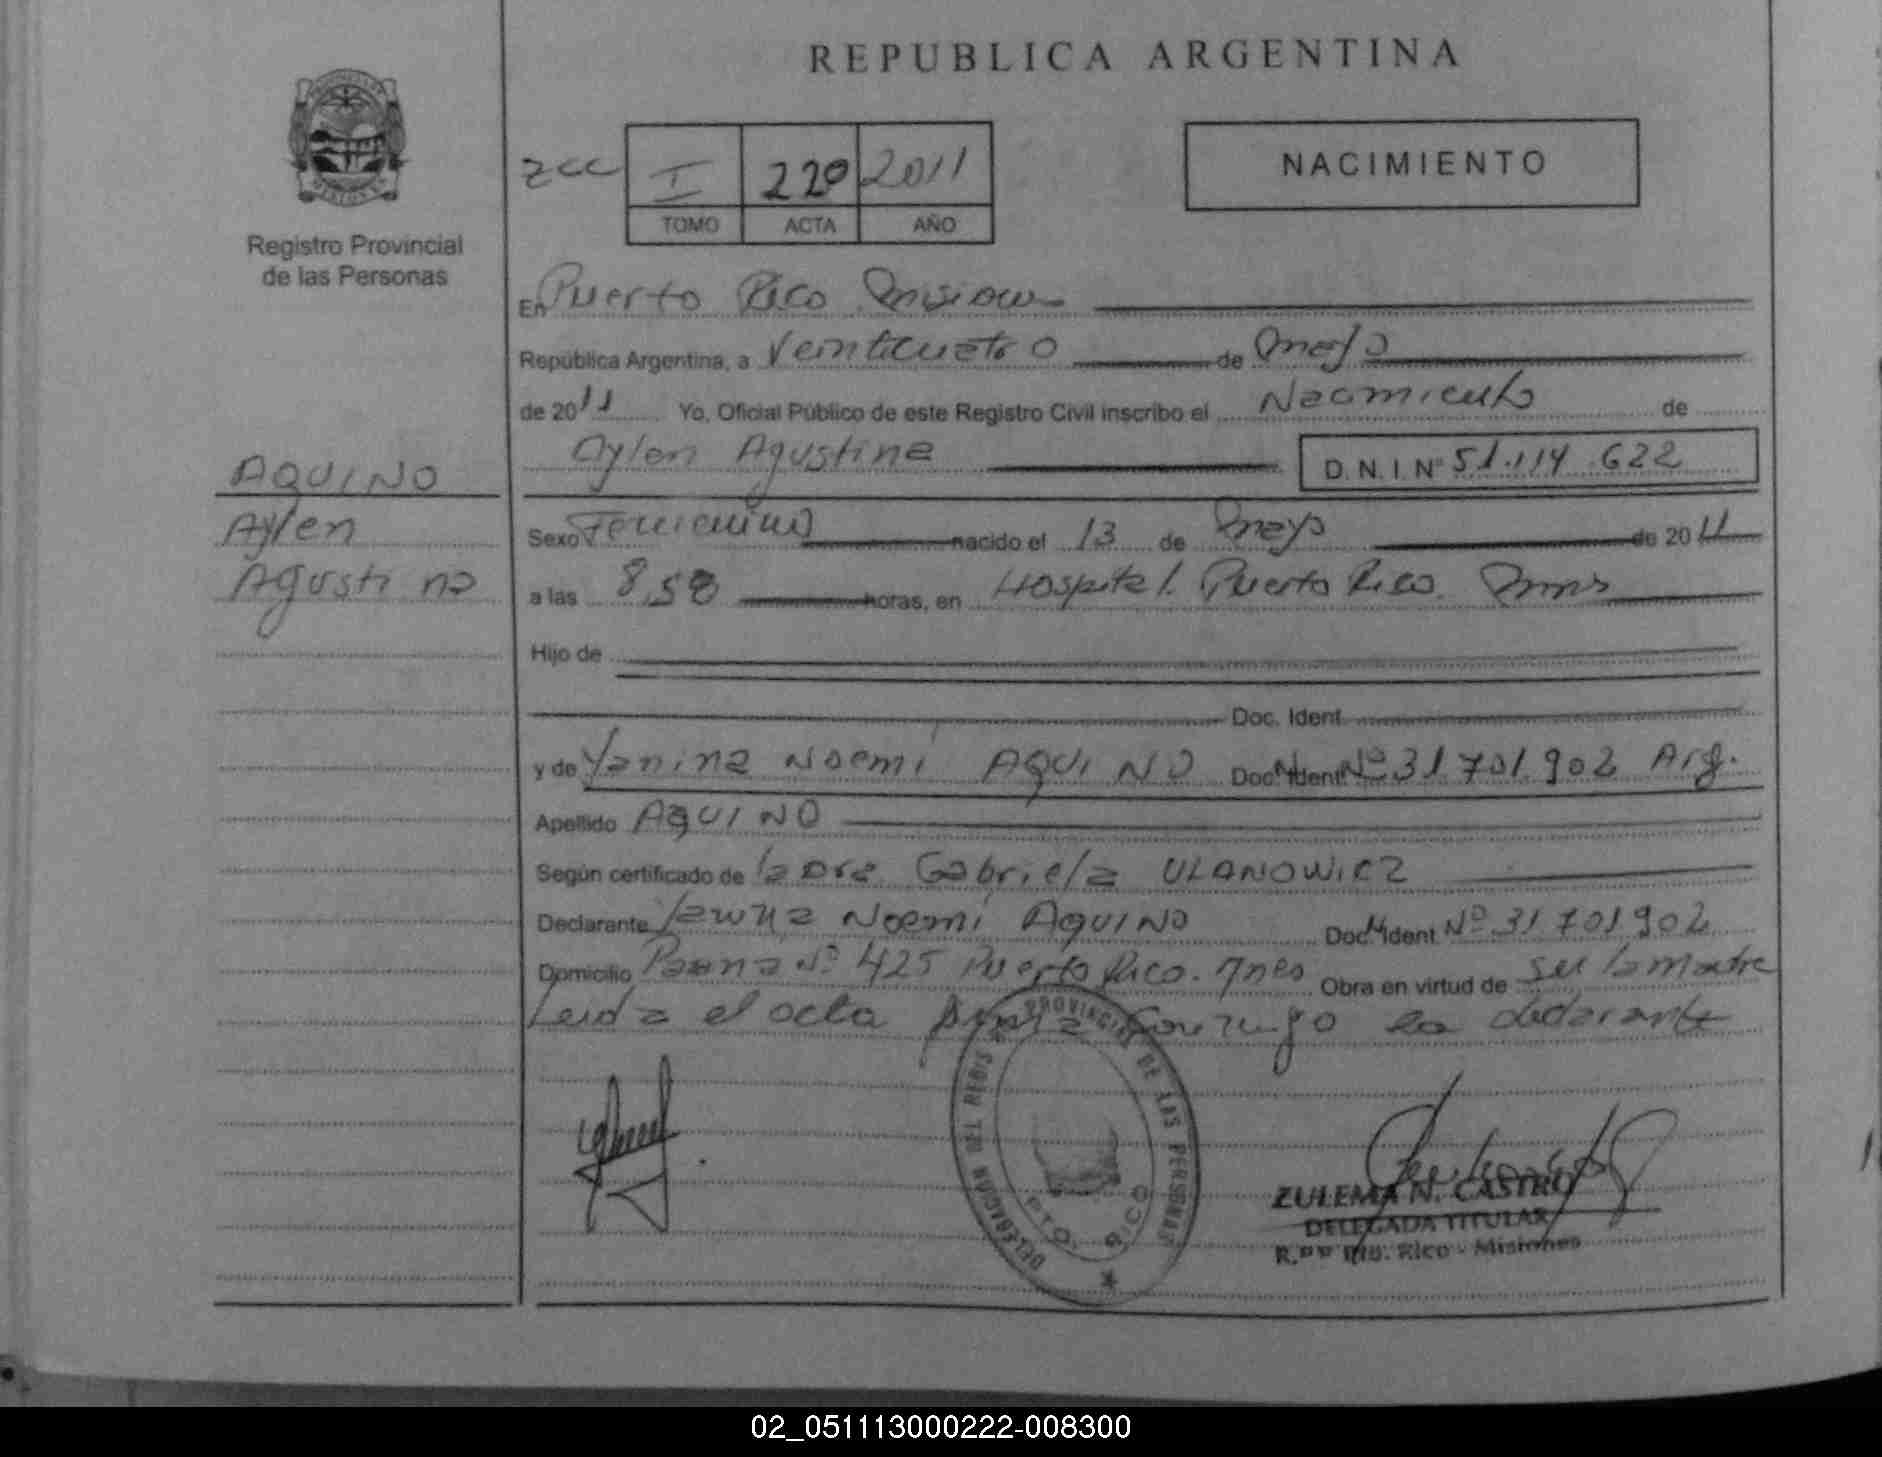 REPUBLICA ARGENTINA
NACIMIENTO
zcc I 220 2011
TOMO ACTA AÑO
Registro Provincial
de las Personas
En Puerto Rico Misiones
República Argentina, a Veinticuatro de mayo
de 2011 Yo, Oficial Público de este Registro Civil inscribo el Nacimiento de
Aylen Agustina D. N. I. Nº 51.114.622
AQUINO
Aylen
Agustina
Sexo Femenino nacido el 13 de mayo de 2011
a las 8,58 horas, en Hospital Puerto Rico. Mnes
Hijo de
Doc. Ident.
y de Yanina Noemí AQUINO Doc. Ident. Nº 31 701 902 Arg.
Apellido AQUINO
Según certificado de la Dra Gabriela ULANOWICZ
Declarante Yanina Noemí AQUINO Doc. Ident. Nº 31 701 902
Domicilio Nº 425 Puerto Rico. Mnes Obra en virtud de ser la madre
Leida el acta firma conmigo la declarante
DELEGACION DEL REGIS PROVINCIAL DE LAS PERSONAS
PTO. RICO
ZULEMA N. CASTRO
DELEGADA TITULAR
Rico - Misiones
02_051113000222-008300